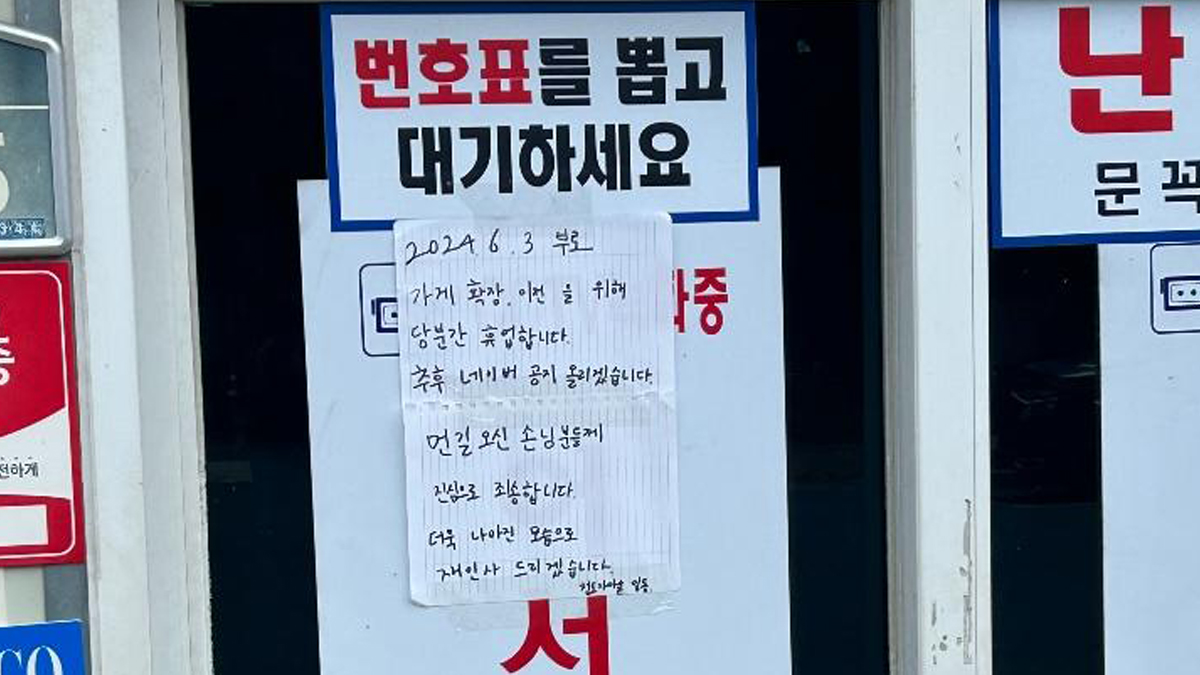 번호표를 뽑고
대기하세요
2024. 6. 3 부로
가게 확장. 이전 을 위해
당분간 휴업합니다.
추후 네이버 공지 올리겠습니다.
먼길 오신 손님분들께
진심으로 죄송합니다.
더욱 나아진 모습으로
재인사 드리겠습니다.
일동
화중
서
난
문 꼭
중
전하게
CO